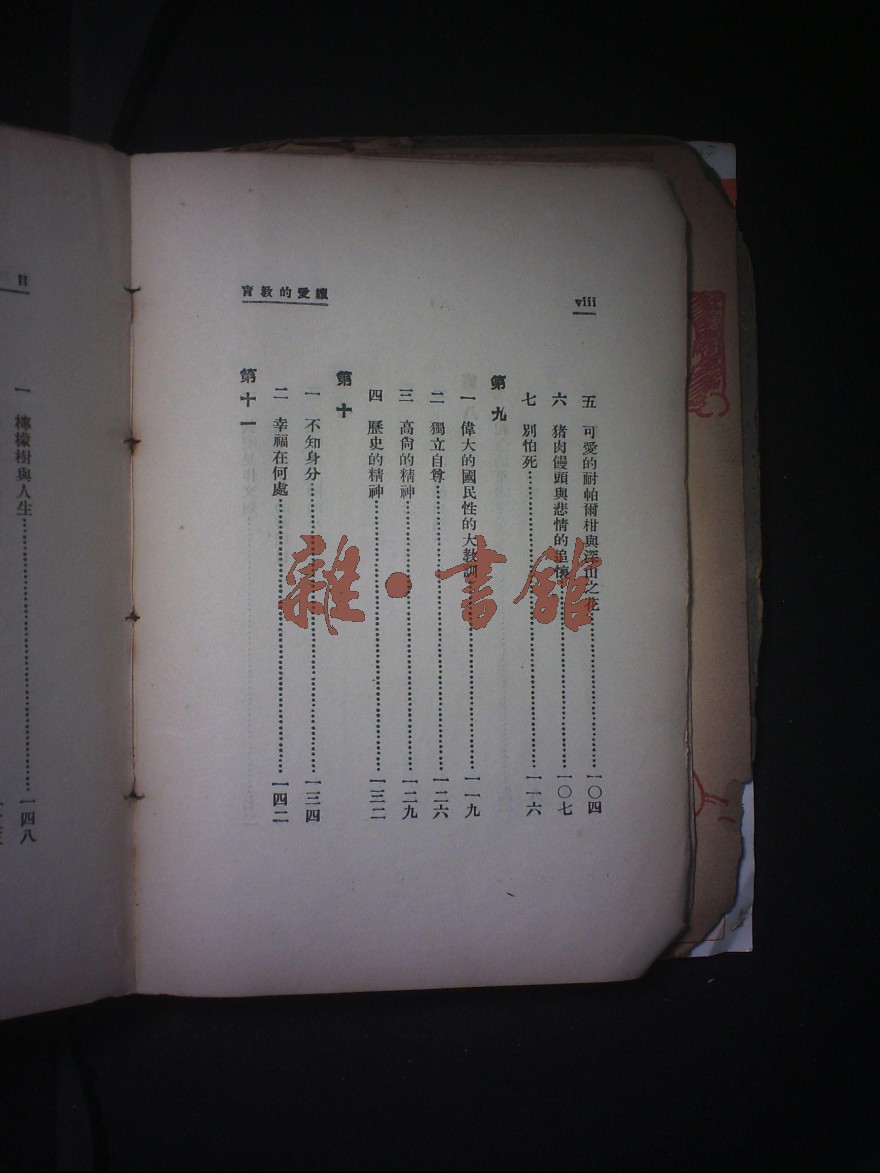 viii
育教的愛續
五 可愛的耐帕爾柑與深山之花……一〇四
六 猪肉饅頭與悲情的追懷……一〇七
七 別怕死……一一六
第九
一 偉大的國民性的大教訓……一一九
二 獨立自尊……一二六
三 高尙的精神……一二九
四 歷史的精神……一三二
第十
一 不知身分……一三四
二 幸福在何處……一四二
第十一
目
一 檸檬樹與人生……一四八
雜·書館